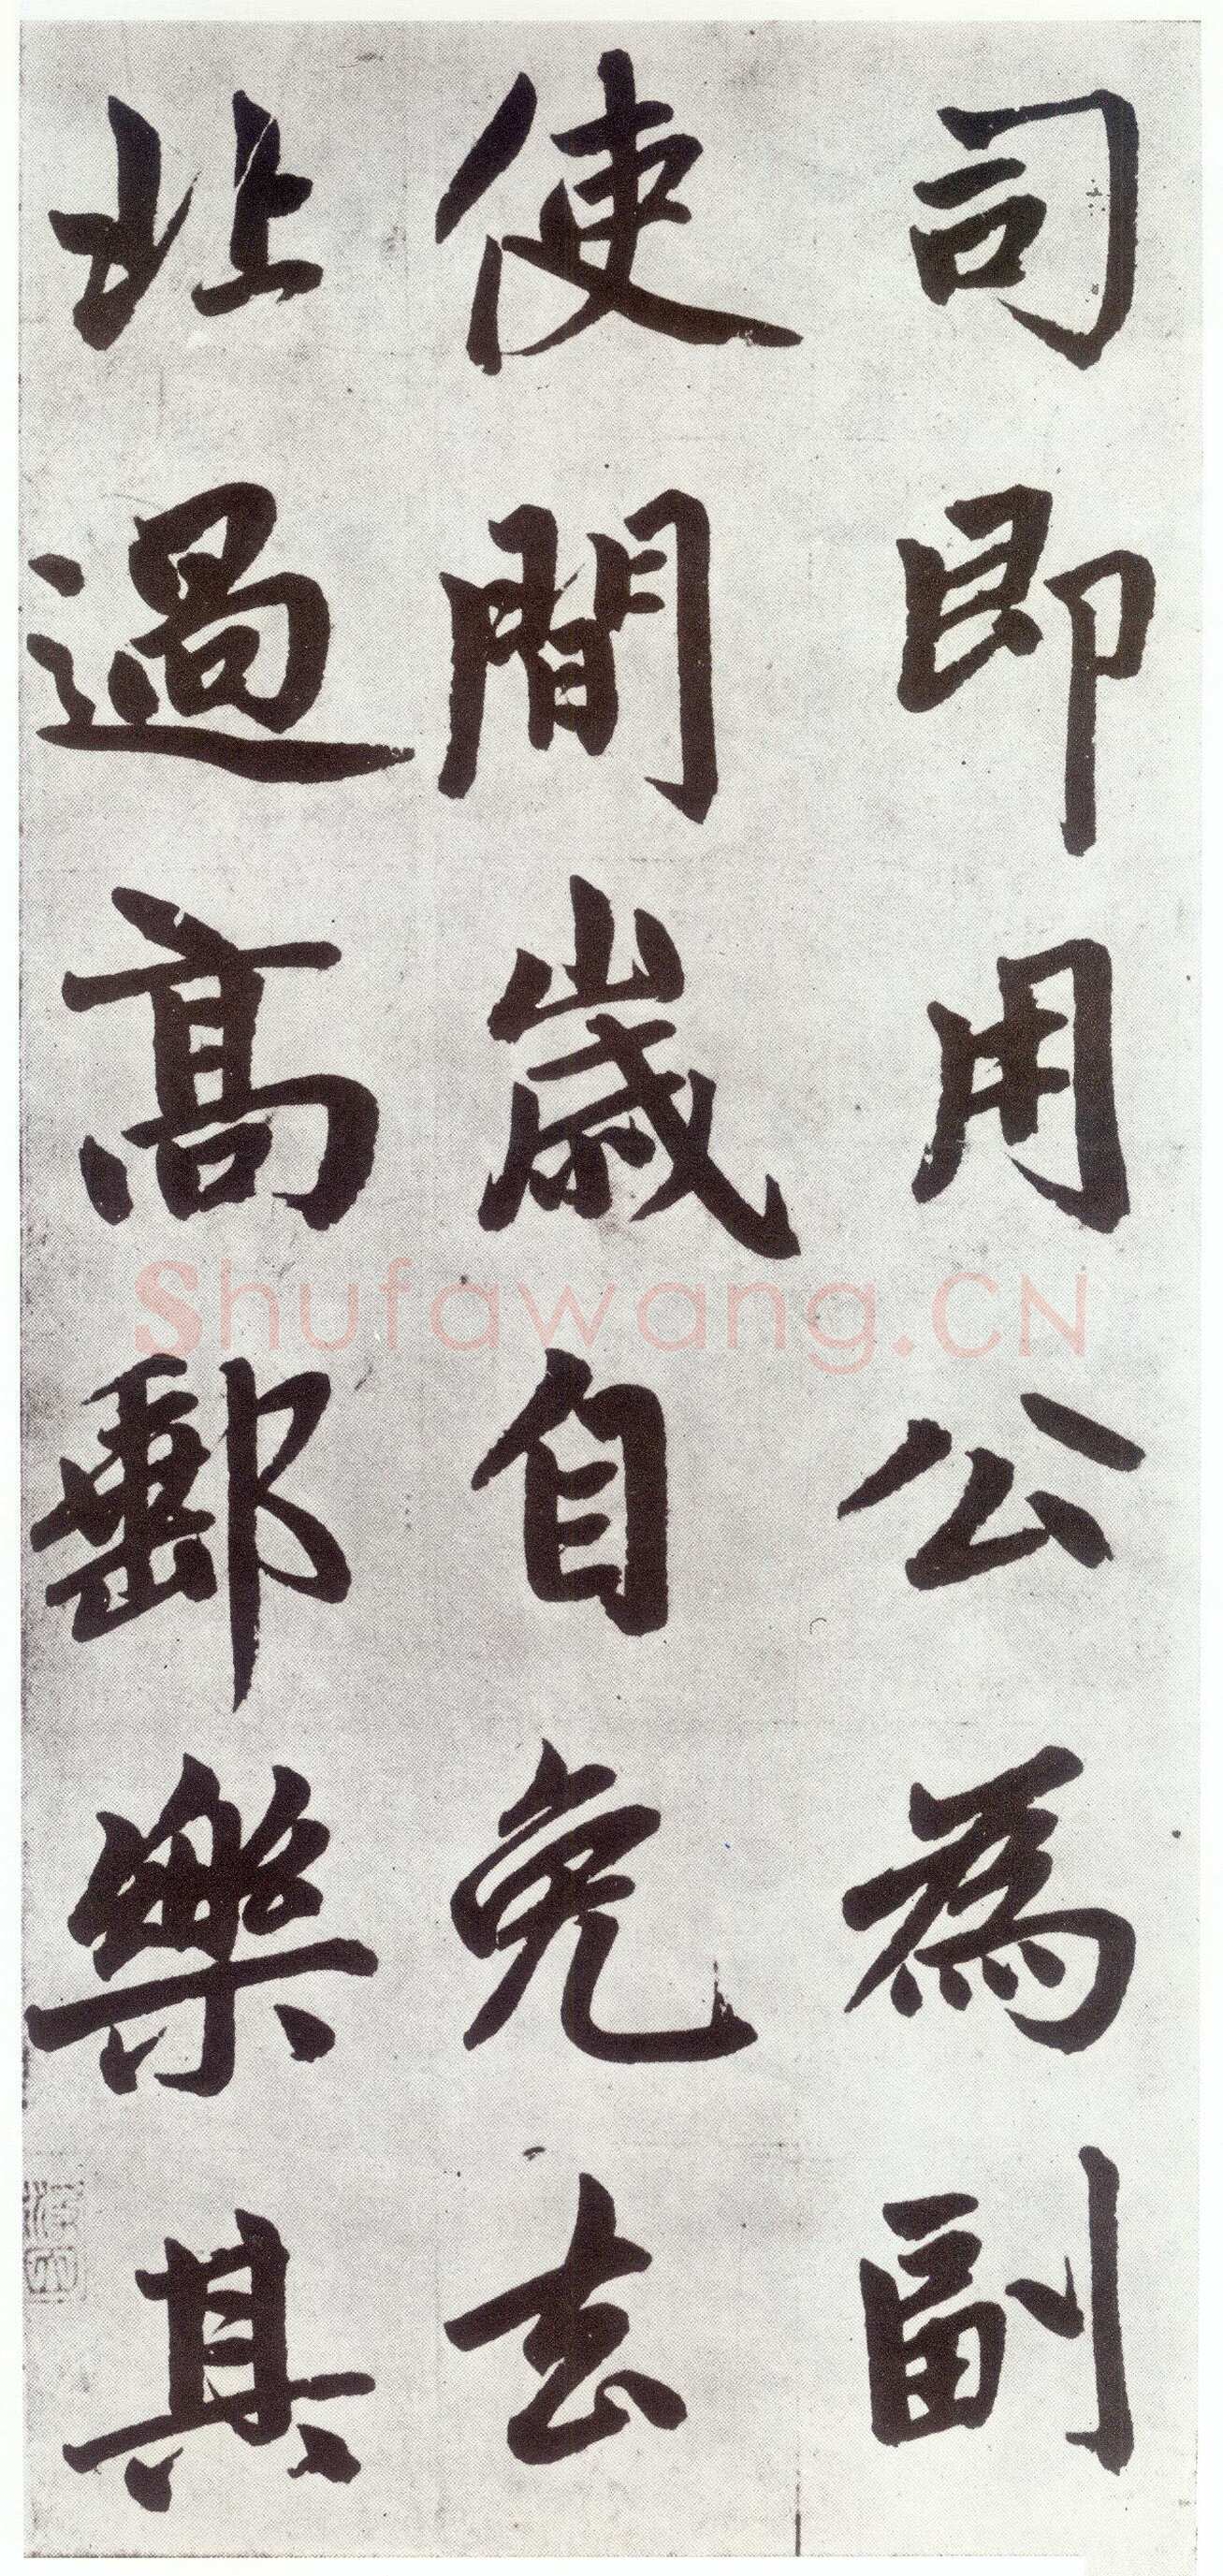 司即用公為副
使間歲自免去
北過高郵樂其
Shufawang.CN